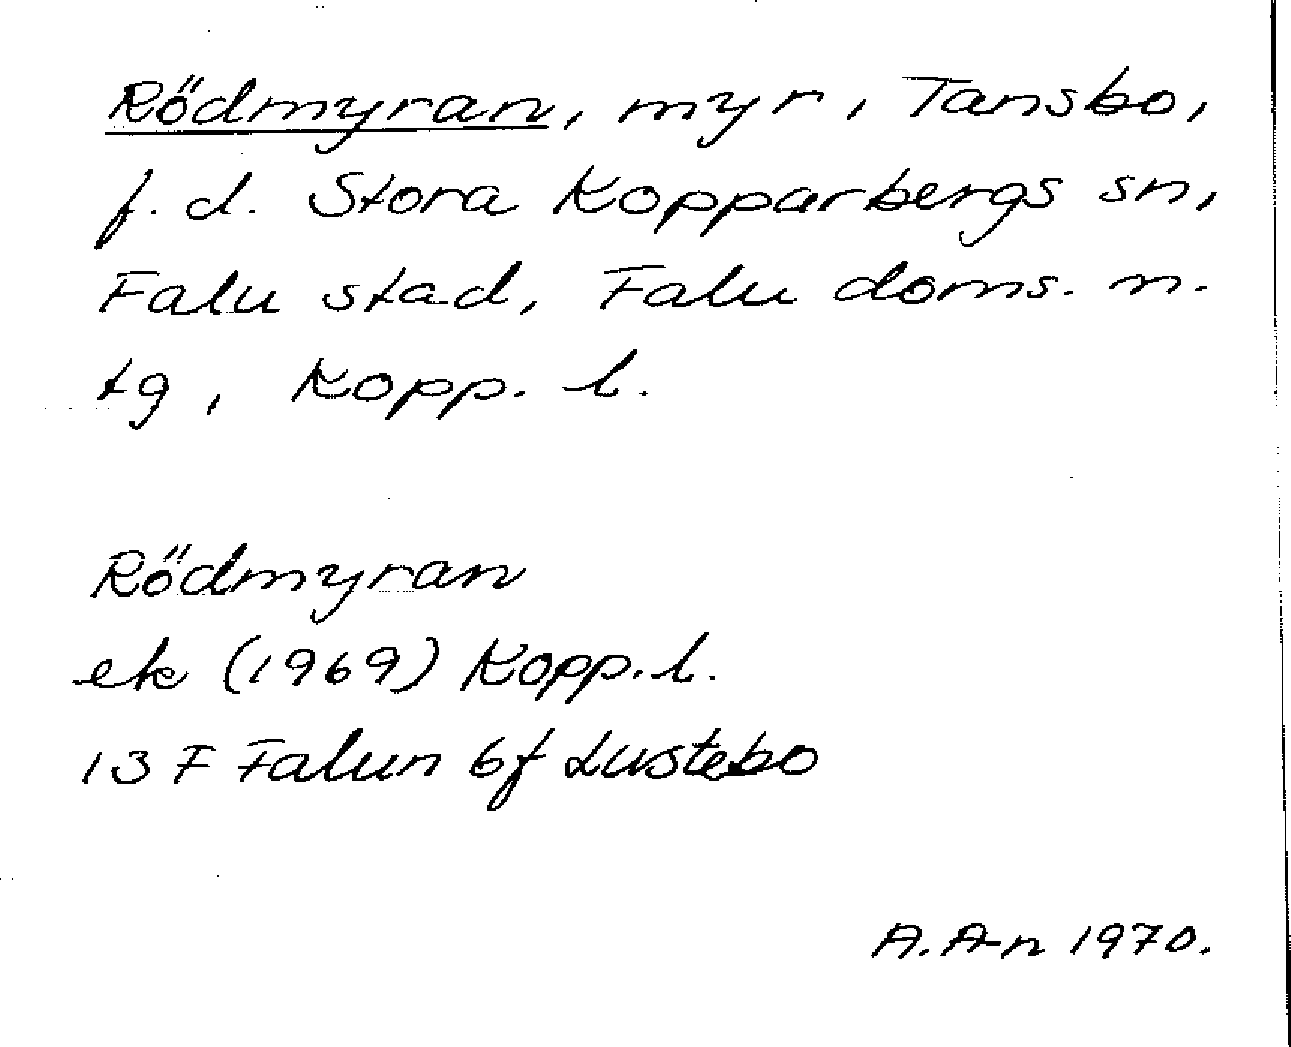 Rödmyran, myr, Tansbo,
f.d. Stora Kopparbergs sn,
Falu stad, Falu doms. n.
tg, Kopp. l.
Rödmyran
ek (1969) Kopp.l.
13 F Falun 6f Lustebo
A.A-n 1970.